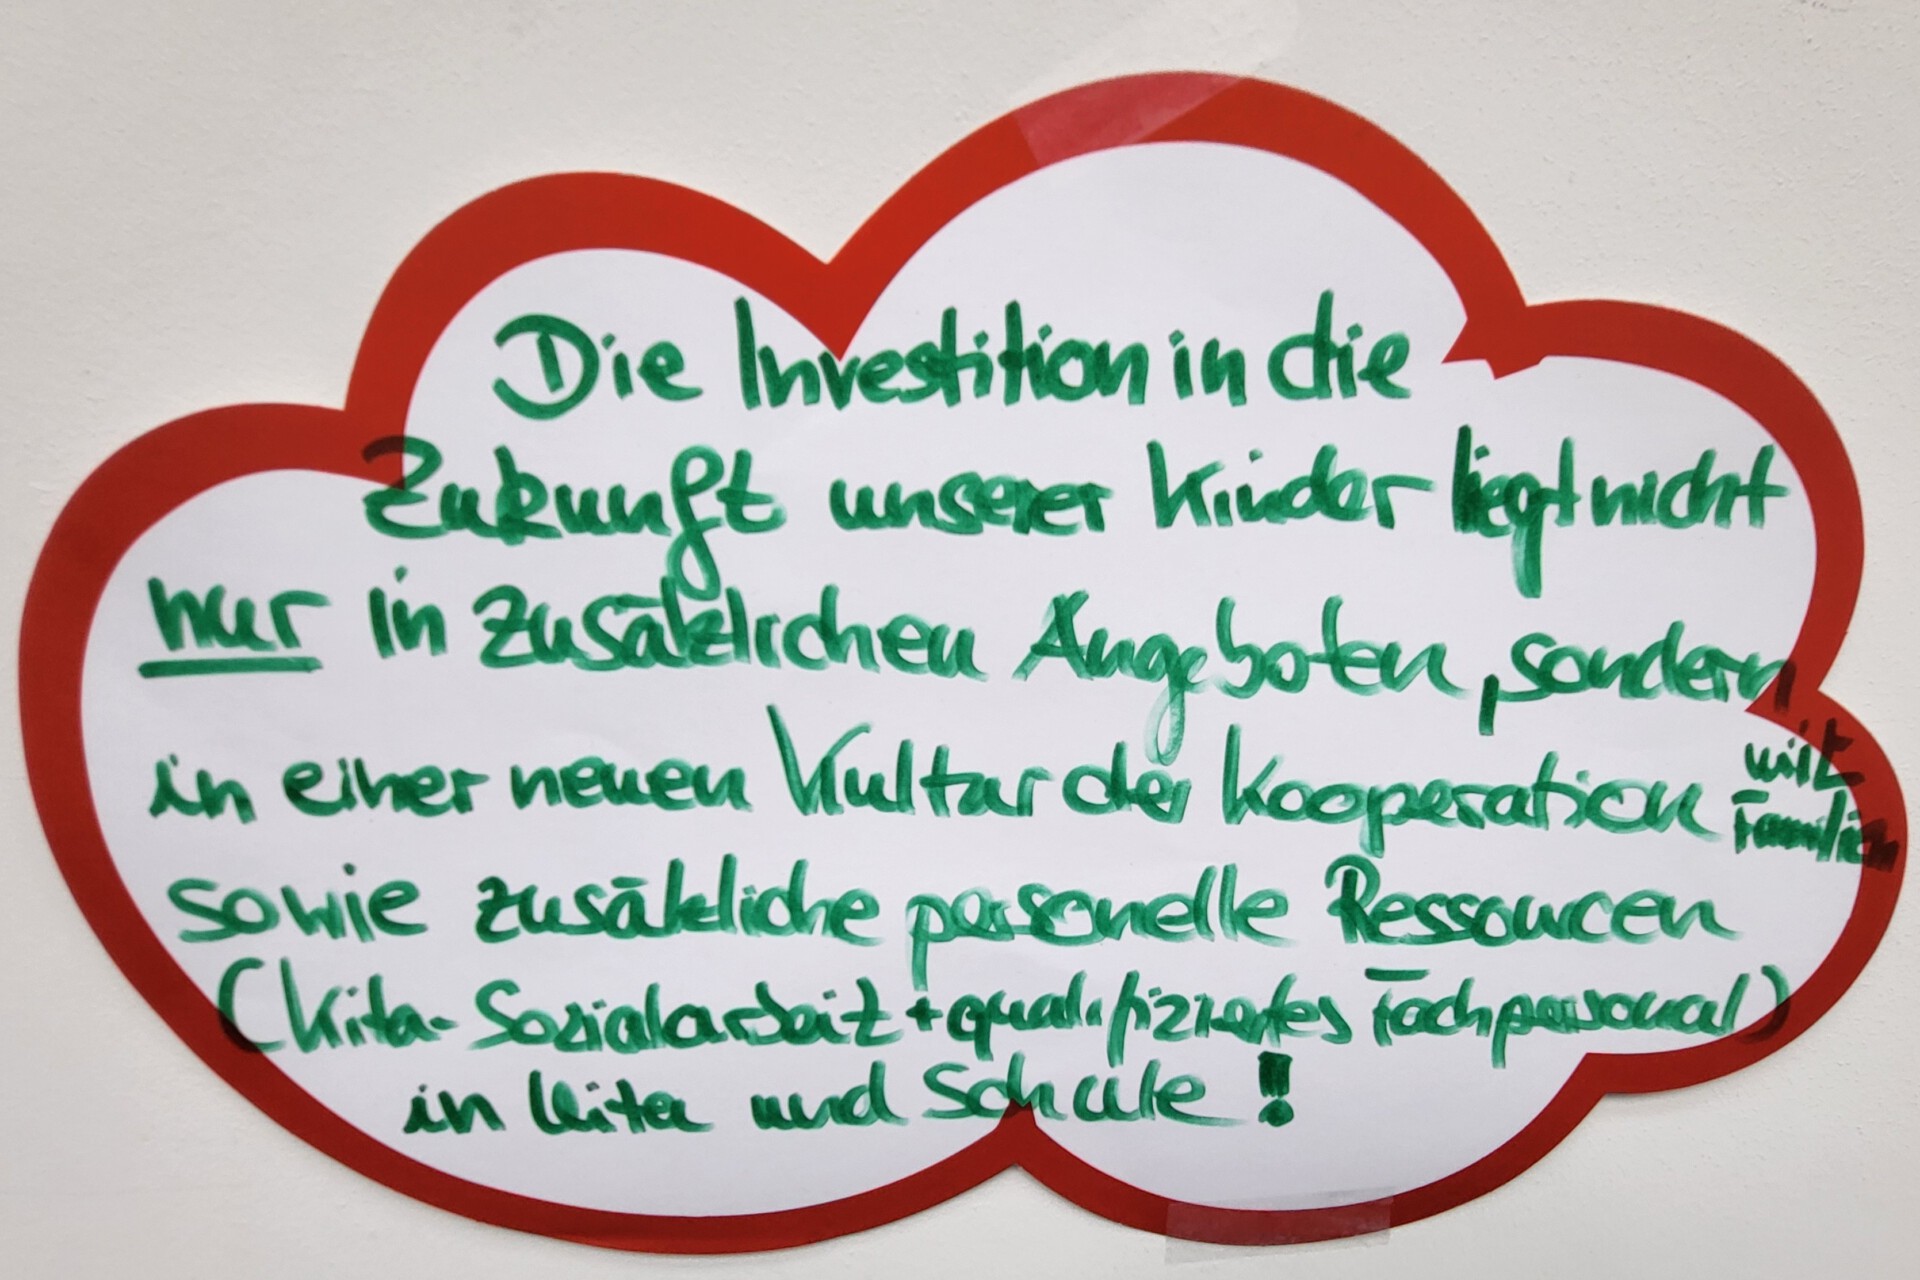 Die Investition in die
Zukunft unserer Kinder liegt nicht
nur in zusätzlichen Angeboten, sondern
in einer neuen Kultur der Kooperation mit Familien
sowie zusätzliche personelle Ressourcen
(Kita-Sozialarbeit + qualifiziertes Fachpersonal)
in Kita und Schule!